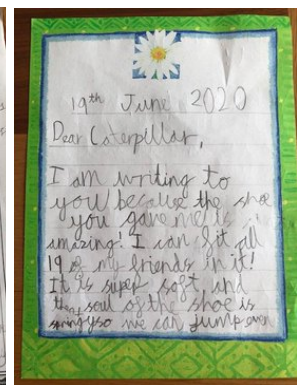 19th June 2020
Dear Caterpillar,
I am writing to
you because the shoe
you gave me is
amazing! I can fit all
19 of my friends in it!
It is super soft and
the soul of the shoe is
springy so we can jump even